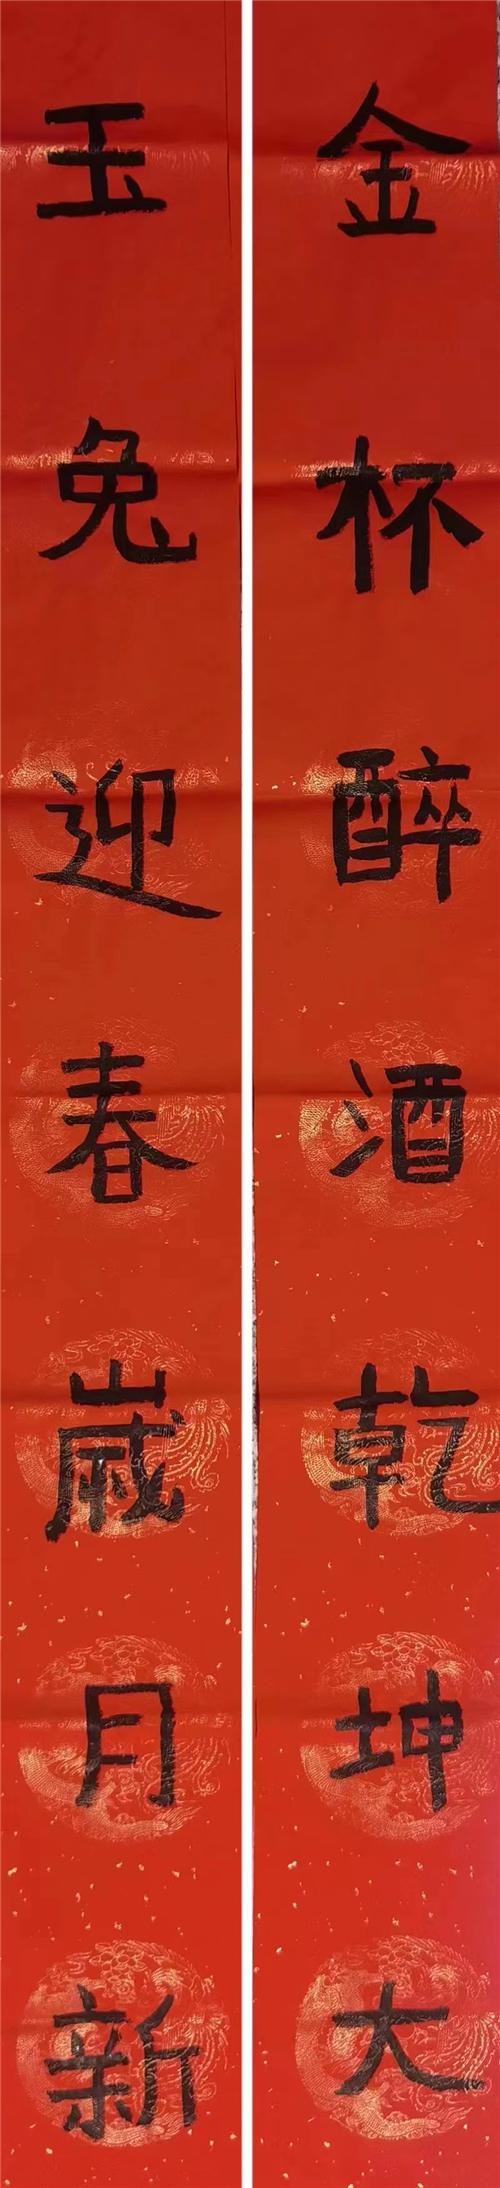 金杯醉酒乾坤大
玉兔迎春嵗月新